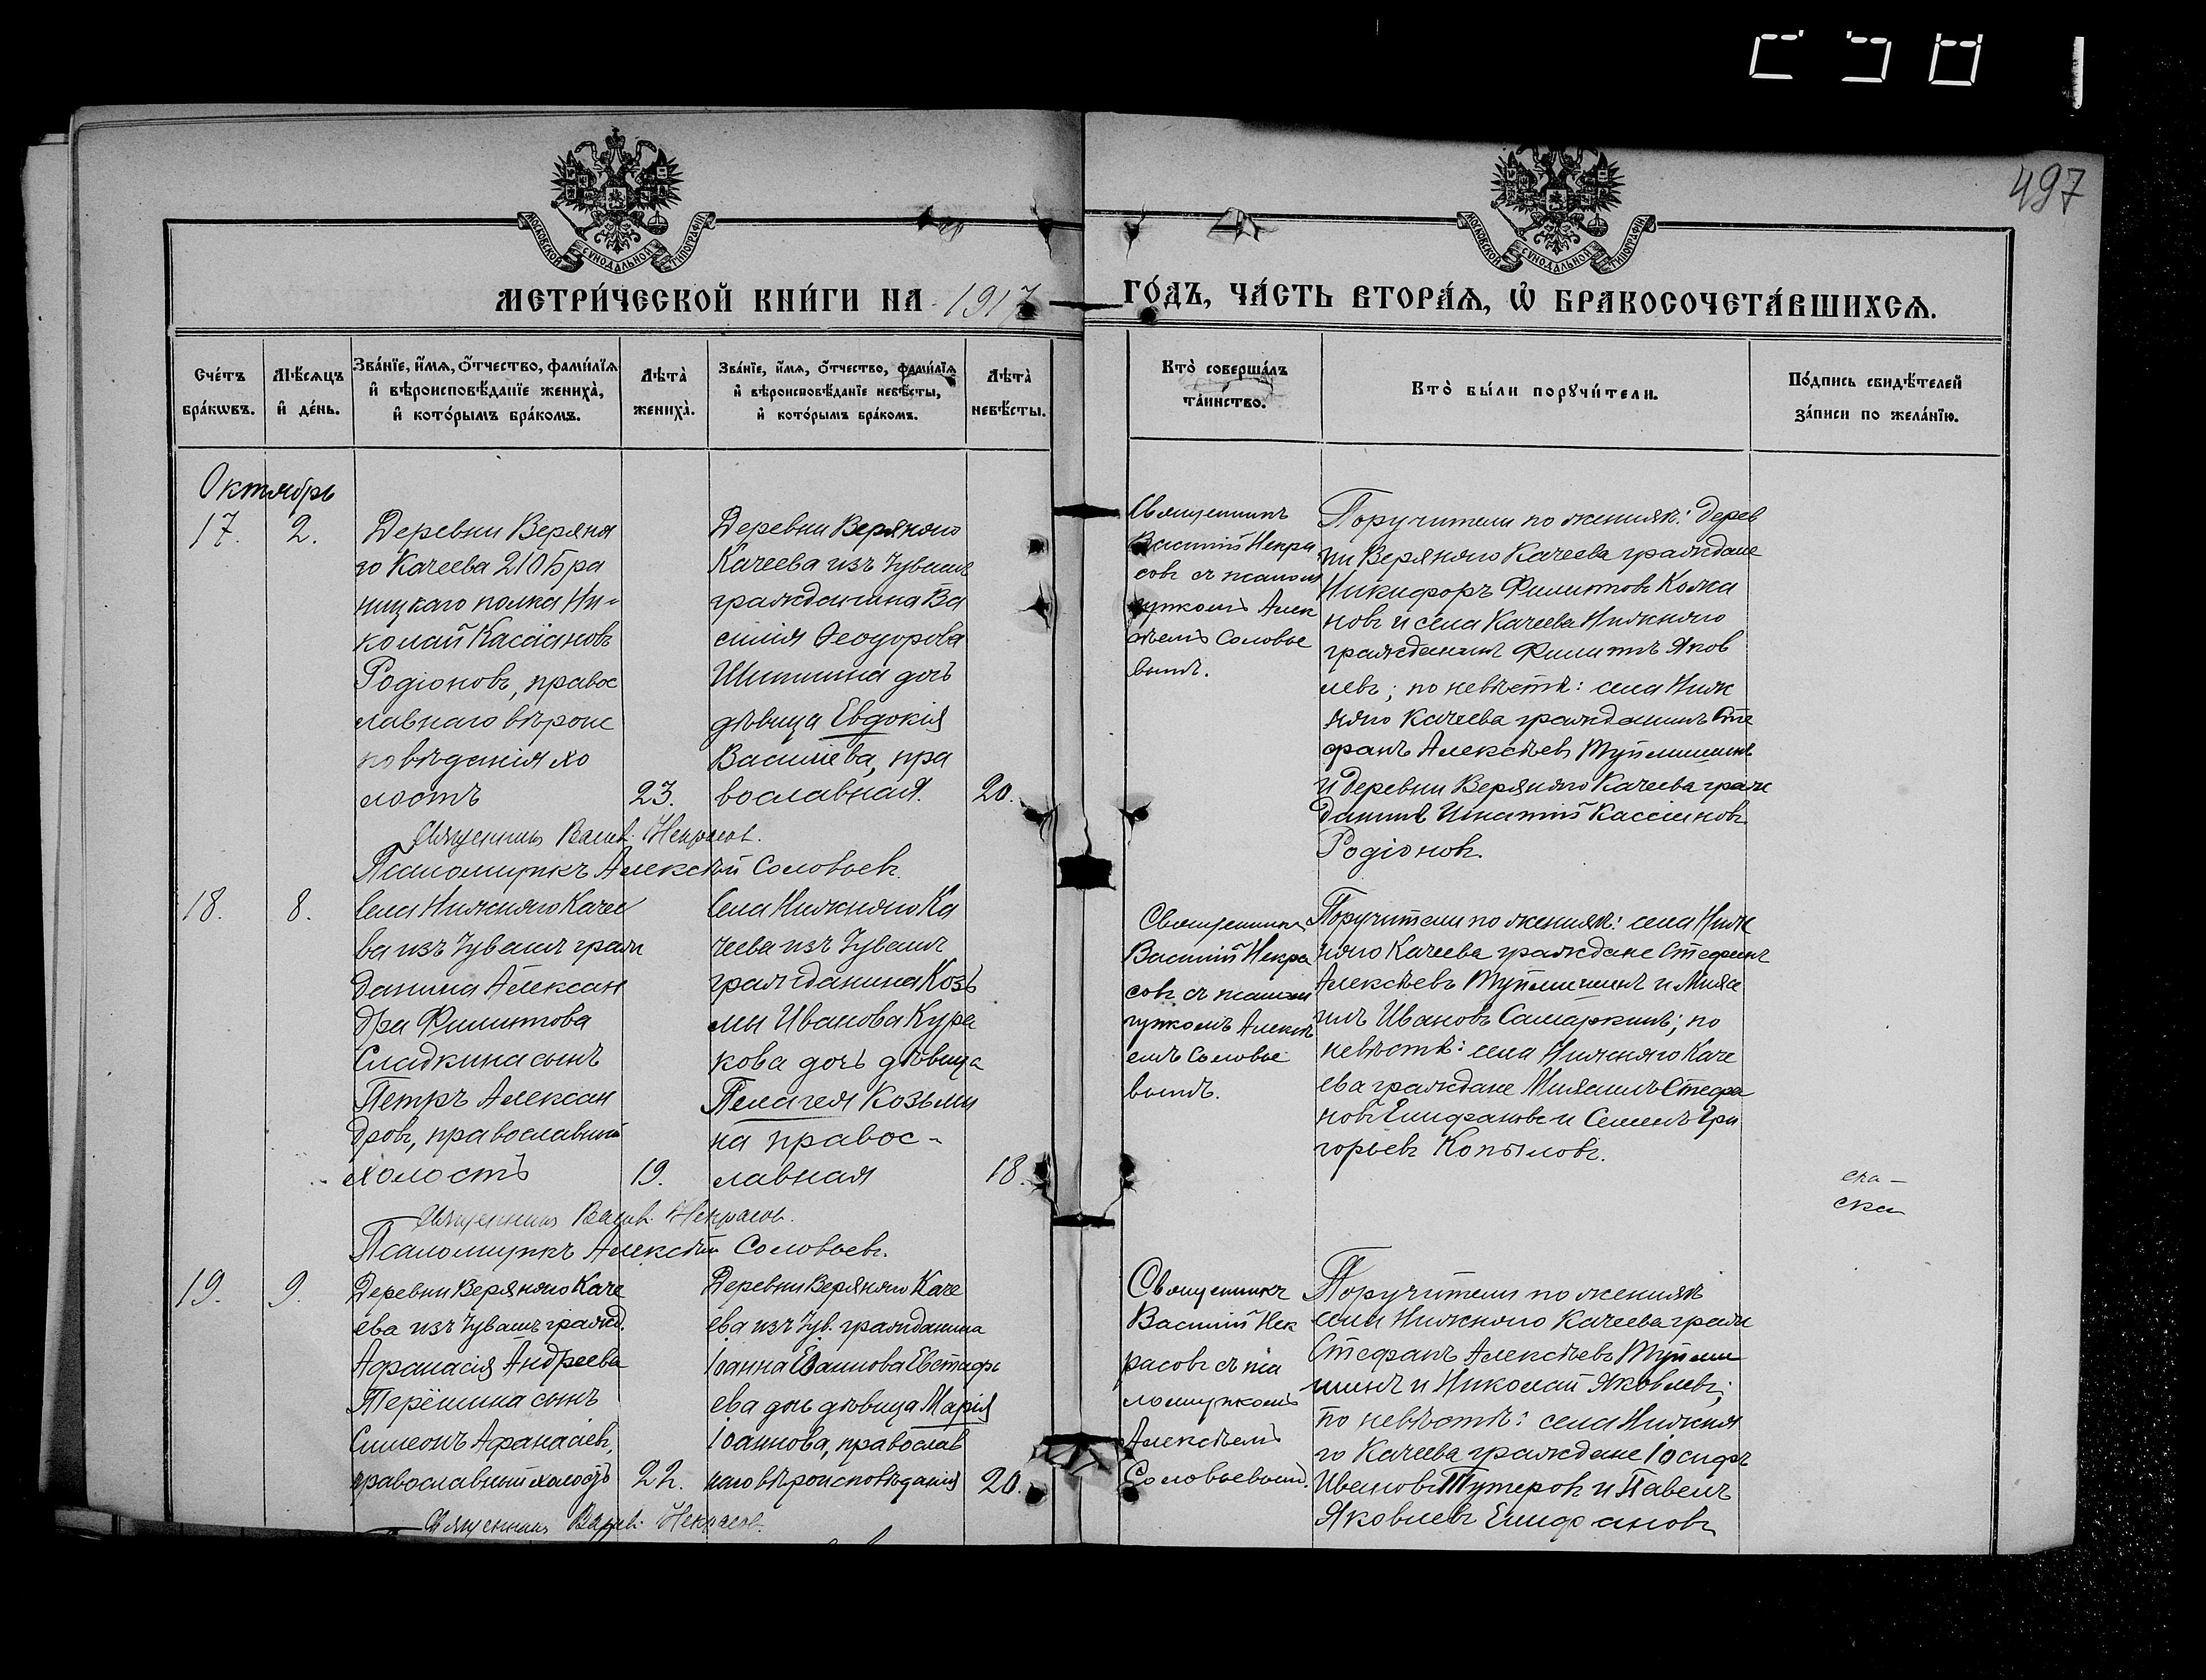 497
МОСКОВСКОЙ СѴНОДАЛЬНОЙ ТИПОГРАФІИ
МОСКОВСКОЙ СѴНОДАЛЬНОЙ ТИПОГРАФІИ
МЕТРИ́ЧЕСКОЙ КНИ́ГИ НА 1917
ГО́ДЪ, ЧА́СТЬ ВТОРА́Ѧ, Ѡ҆ БРАКОСОЧЕТА́ВШИХСѦ.
Сче́тъ
бра́кѡвъ.
Мѣ́сѧцъ
и҆ де́нь.
Зва́нїе, и҆́мѧ, ѻ҆́тчество, фами́лїѧ
и҆ вѣроисповѣ́данїе жениха̀,
и҆ кото́рымъ бра́комъ.
Лѣ́та̀
жениха̀.
Зва́нїе, и҆́мѧ, ѻ҆́тчество, фами́лїѧ
и҆ вѣроисповѣ́данїе невѣ́сты,
и҆ кото́рымъ бра́комъ.
Лѣ́та̀
невѣ́сты.
Кто̀ соверша́лъ
та́инство.
Кто̀ бы́ли порꙋчи́тели.
По́дпись свидѣ́телей
за́писи по жела́нїю.
Октябрь
17.
2.
Деревни Верхня
го Качеева 210 Бра
ницкаго полка Ни-
колай Кассіановъ
Родіоновъ, правос
лавнаго вѣроис
повѣданія хо
лостъ
23.
Деревни Верхняго
Качеева изъ Чувашъ
гражданина Ва
силія Ѳеодорова
Шипшина дочь
дѣвица Евдокія
Василіева, пра
вославная.
20.
Священникъ
Василій Некра
совъ съ псалом
щикомъ Алек
сѣемъ Соловье
вымъ.
Поручители по женихѣ: дерев
ни Верхняго Качеева граждане
Никифоръ Филиповъ Колча
новъ и села Качеева Нижняго
гражданинъ Филиппъ Яков
левъ; по невѣстѣ: села Ниж
няго Качеева гражданинъ Сте
фанъ Алексѣевъ Туймишинъ
и деревни Верхняго Качеева граж
данинъ Игнатій Кассіановъ
Родіоновъ.
Священникъ Васил. Некрасов.
Псаломщикъ Алексѣй Соловьевъ.
18.
8.
Села Нижняго Качее
ва изъ Чувашъ граж
данина Алексан
дра Филиппова
Сладкина сынъ
Петръ Алексан
дровъ, православный
холостъ
19.
Села Нижняго Ка
чеева изъ Чувашъ
гражданина Козь
мы Иванова Кура
кова дочь дѣвица
Пелагея Козьми
на правос-
лавная
18.
Священникъ
Василій Некра
совъ съ псалом
щикомъ Алексѣ
емъ Соловье
вымъ.
Поручители по женихѣ: села Ниж
няго Качеева граждане Стефанъ
Алексѣевъ Туймишинъ и Миха
илъ Ивановъ Самаркинъ; по
невѣстѣ: села Нижняго Каче
ева граждане Михаилъ Стефа
новъ Епифановъ и Семенъ Гри
горьевъ Копыловъ.
Священникъ Васил. Некрасов.
Псаломщикъ Алексѣй Соловьевъ.
19.
9.
Деревни Верхняго Каче
ева изъ Чувашъ гражд.
Аѳанасія Андреева
Терёшина сынъ
Симеонъ Аѳанасіевъ,
православный холостъ
22.
Деревни Верхняго Каче
ева изъ Чув. гражданина
Іоанна Іоаннова Евстафь
ева дочь дѣвица Марія
Іоаннова, православ
наго вѣроисповѣданія
20.
Священникъ
Василій Нек
расовъ съ пса
ломщикомъ
Алексѣемъ
Соловьевымъ.
Поручители по женихѣ
села Нижняго Качеева граж
Стефанъ Алексѣевъ Туйми
шинъ и Николай Яковлевъ;
по невѣстѣ: села Нижня
го Качеева граждане Іосифъ
Ивановъ Тутеровъ и Павелъ
Яковлевъ Епифановъ
Священникъ Васил. Некрасов.